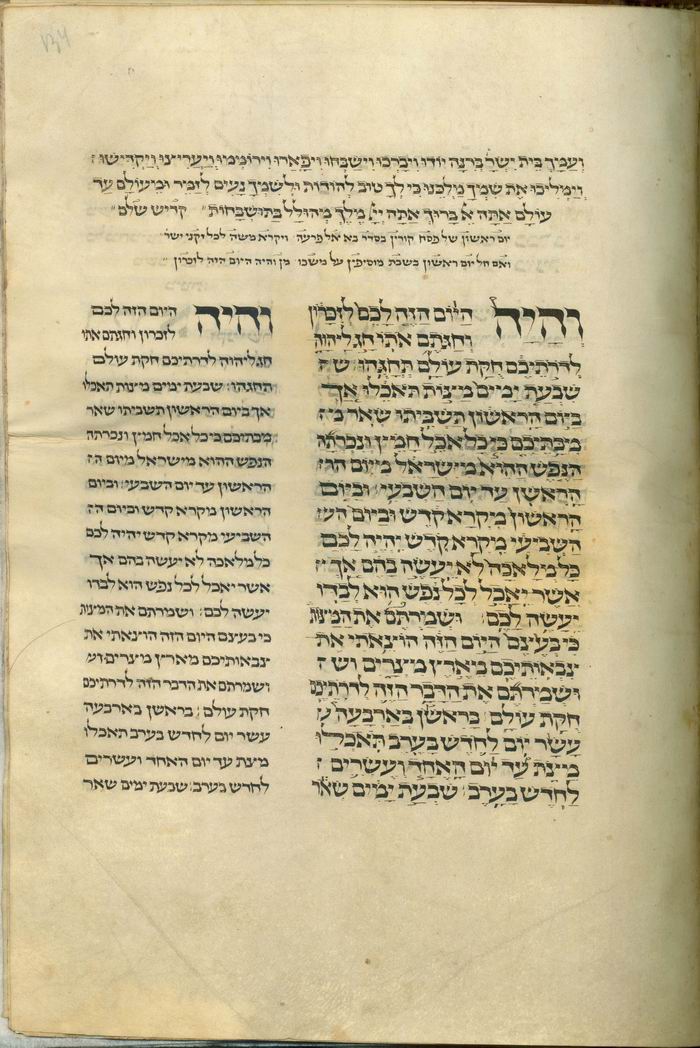 134
ועמך בית ישר' ברנה יודו ויברכו וישבחו ויפארו וירוממו ויעריצו ויקדישו
וימליכו את שמך מלכנו כי לך טוב להודות ולשמך נעים לזמר ומעולם עד
עולם אתה א ברוך אתה יי מלך מהולל בתושבחות קדיש שלם
יום ראשון של פסח קורין בסדר בא אל פרעה ויקרא משה לכל זקני ישר'
ואם חל יום ראשון בשבת מוסיפין על משכו מן והיה היום הזה לזכרון
והיה היום הזה לכם לזכרון
וחגתם אתו חג ליהוה
לדרתיכם חקת עולם תחגהו ש
שבעת ימים מצות תאכלו אך
ביום הראשון תשביתו שאר מ
מבתיכם כי כל אכל חמץ ונכרתה
הנפש ההיא מישראל מיום ה
הראשן עד יום השבעי וביום
הראשון מקרא קדש וביום הש
השביעי מקרא קדש יהיה לכם
כל מלאכה לא יעשה בהם אך
אשר יאכל לכל נפש הוא לבדו
יעשה לכם ושמרתם את המצות
כי בעצם היום הזה הוצאתי את
צבאותיכם מארץ מצרים וש
ושמרתם את הדבר הזה לדרתיכם
חקת עולם בראשן בארבעה ע
עשר יום לחדש בערב תאכלו
מצת עד יום האחד ועשרים
לחדש בערב שבעת ימים שאר
והיה היום הזה לכם
לזכרון וחגתם אתו
חג ליהוה לדרתיכם חקת עולם
תחגהו שבעת ימים מצות תאכלו
אך ביום הראשון תשביתו שאר
מבתיכם כי כל אכל חמץ ונכרתה
הנפש ההוא מישראל מיום ה
הראשון עד יום השבעי וביום
הראשון מקרא קדש וביום ה
השביעי מקרא קדש יהיה לכם
כל מלאכה לא יעשה בהם אך
אשר יאכל לכל נפש הוא לבדו
יעשה לכם ושמרתם את המצות
כי בעצם היום הזה הוצאתי את
צבאותיכם מארץ מצרים וש
ושמרתם את הדבר הזה לדרתיכם
חקת עולם בראשן בארבעה
עשר יום לחדש בערב תאכלו
מצת עד יום האחד ועשרים
לחדש בערב שבעת ימים שאר